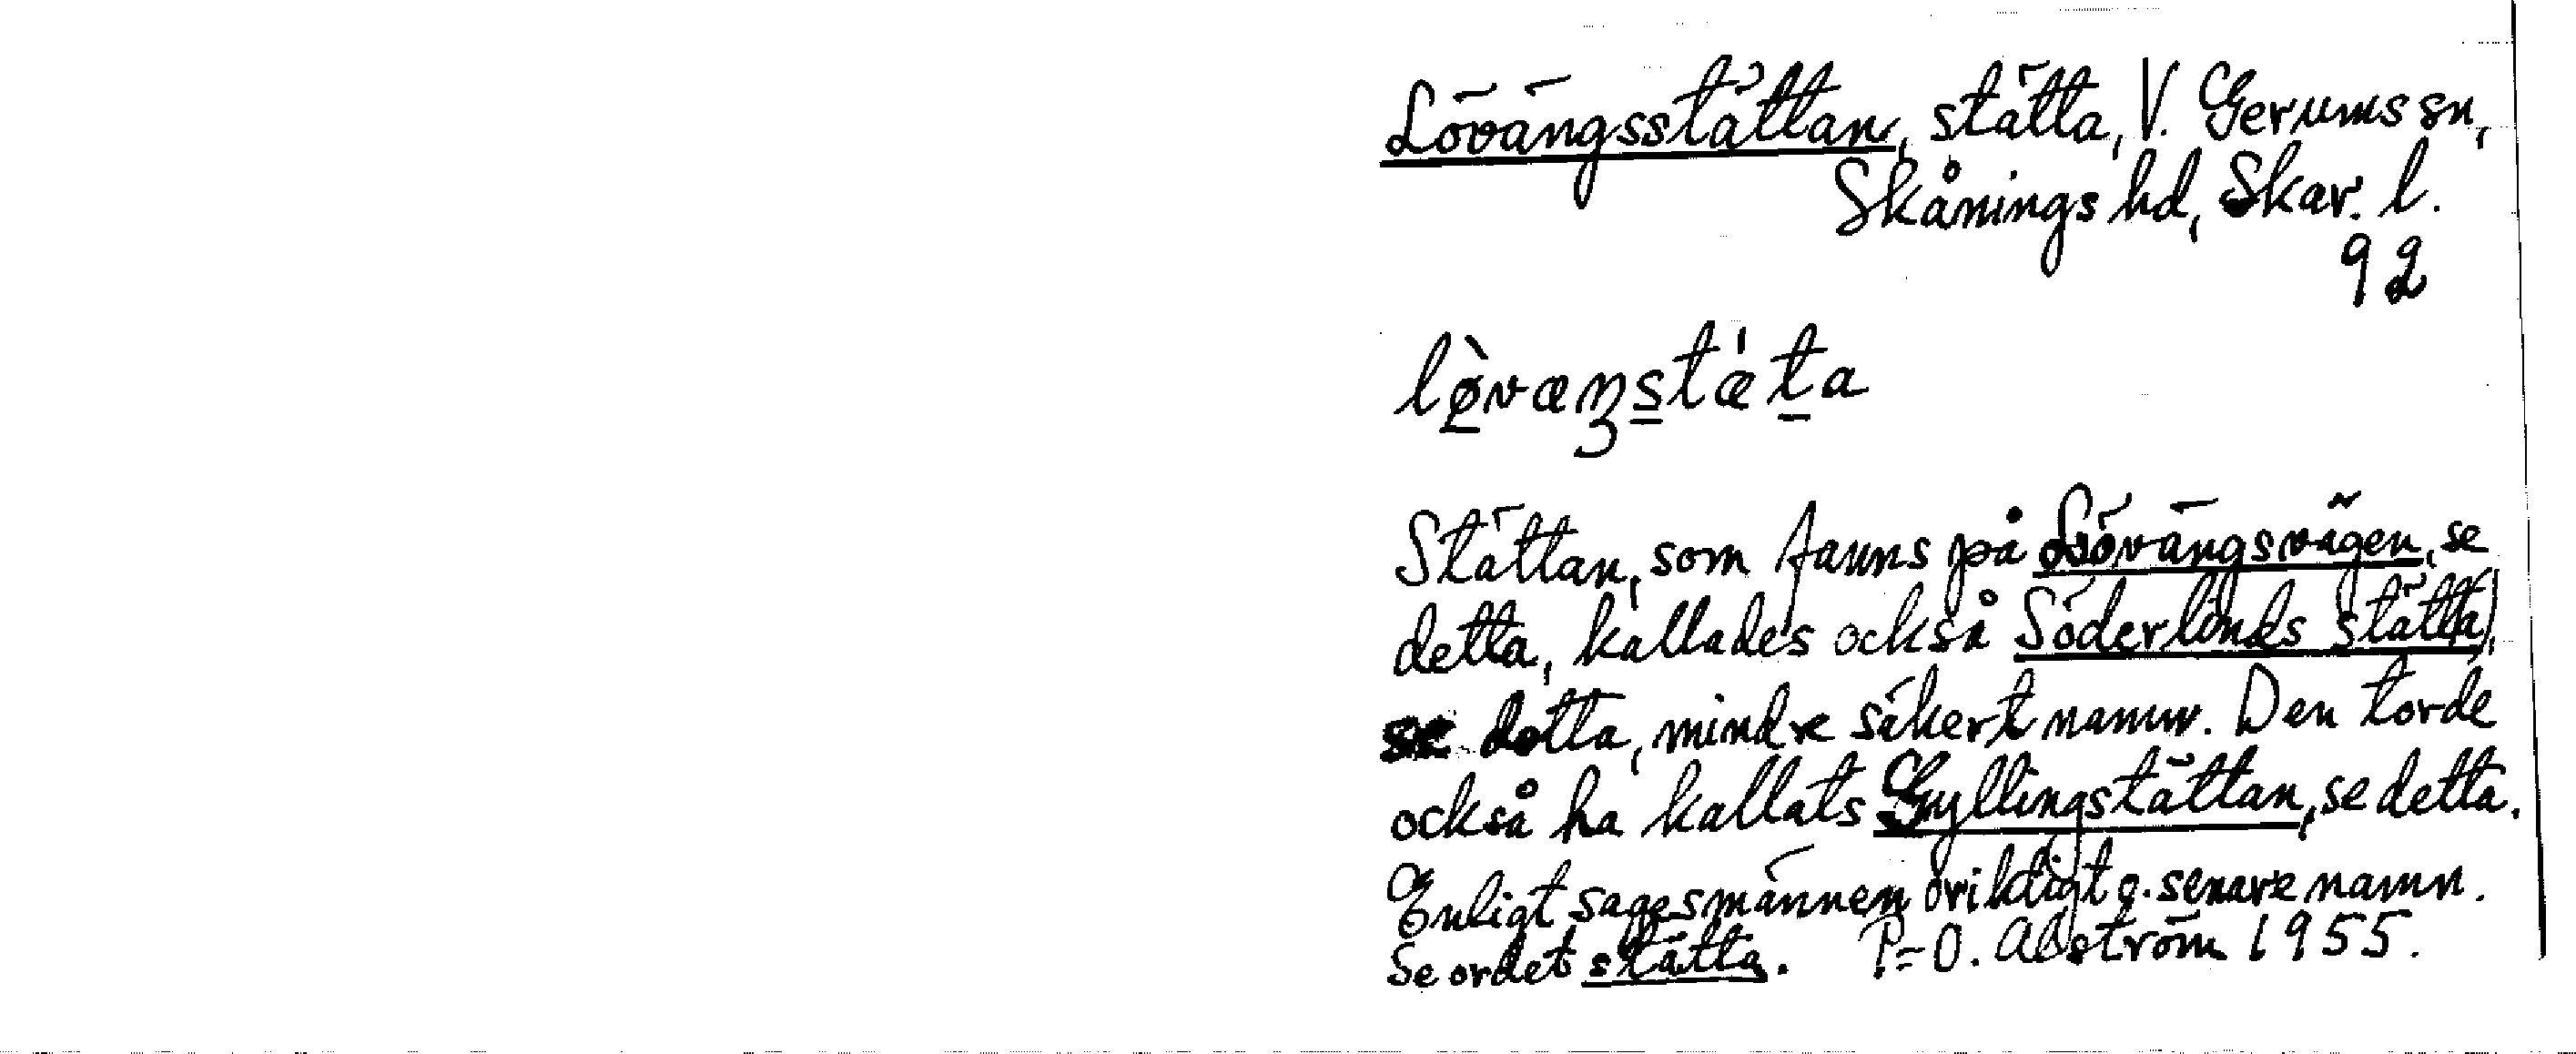 Lövängsstättan, stätta, V. Gerums sn,
Skånings hd, Skar. l.
92
lø̀væŋstæ̍ta
Stättan, som fanns på Lövängsvägen, se
detta, kallades också Söderlinds stätta,
se detta, mindre säkert namn. Den torde
också ha kallats Gyllingstättan, se detta.
Enligt sagesmännen oriktigt o. senare namn.
Se ordet stätta. P-O. Alström 1955.